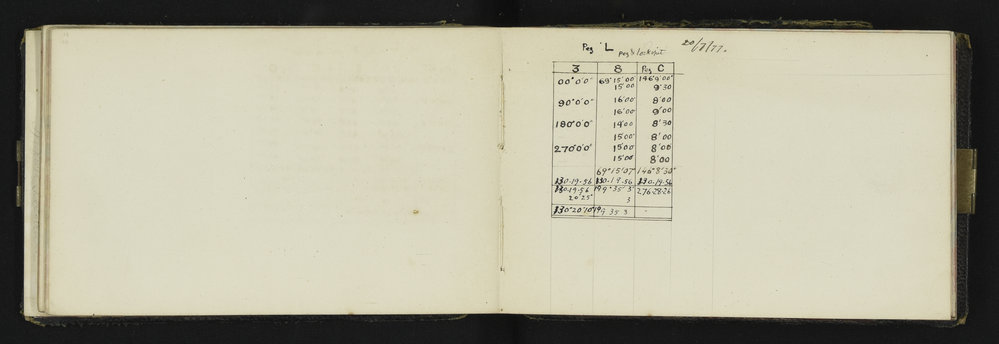 Peg L 20/7/77.
3 8 Peg C
00°0'0" 69°15'00" 146°9'00"
15'00 9'30
90°0'0" 16'00 8'00
16'00 9'00
180°0'0" 14'00 8'30
15'00 8'00
270°0'0" 15'00 8'00
15'00 8'00
69°15'07" 146°8'30"
130.19.56 130.19.56 130.19.56
130.19.56 199°35'3" 276.28.26
20'25" 3
130°20'10" 199 35 3 -